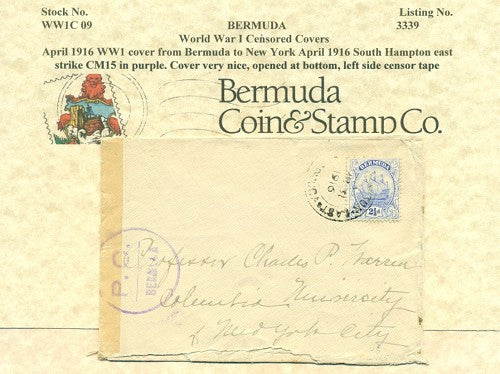 Stock No. BERMUDA Listing No.
WW1C 09 World War I Censored Covers 3339
April 1916 WW1 cover from Bermuda to New York April 1916 South Hampton east
strike CM15 in purple. Cover very nice, opened at bottom, left side censor tape
Bermuda
Coin&Stamp Co.
BERMUDA
2½d
P. C.
BERMUDA
Professor Charles P. Warren
Columbia University
New York City